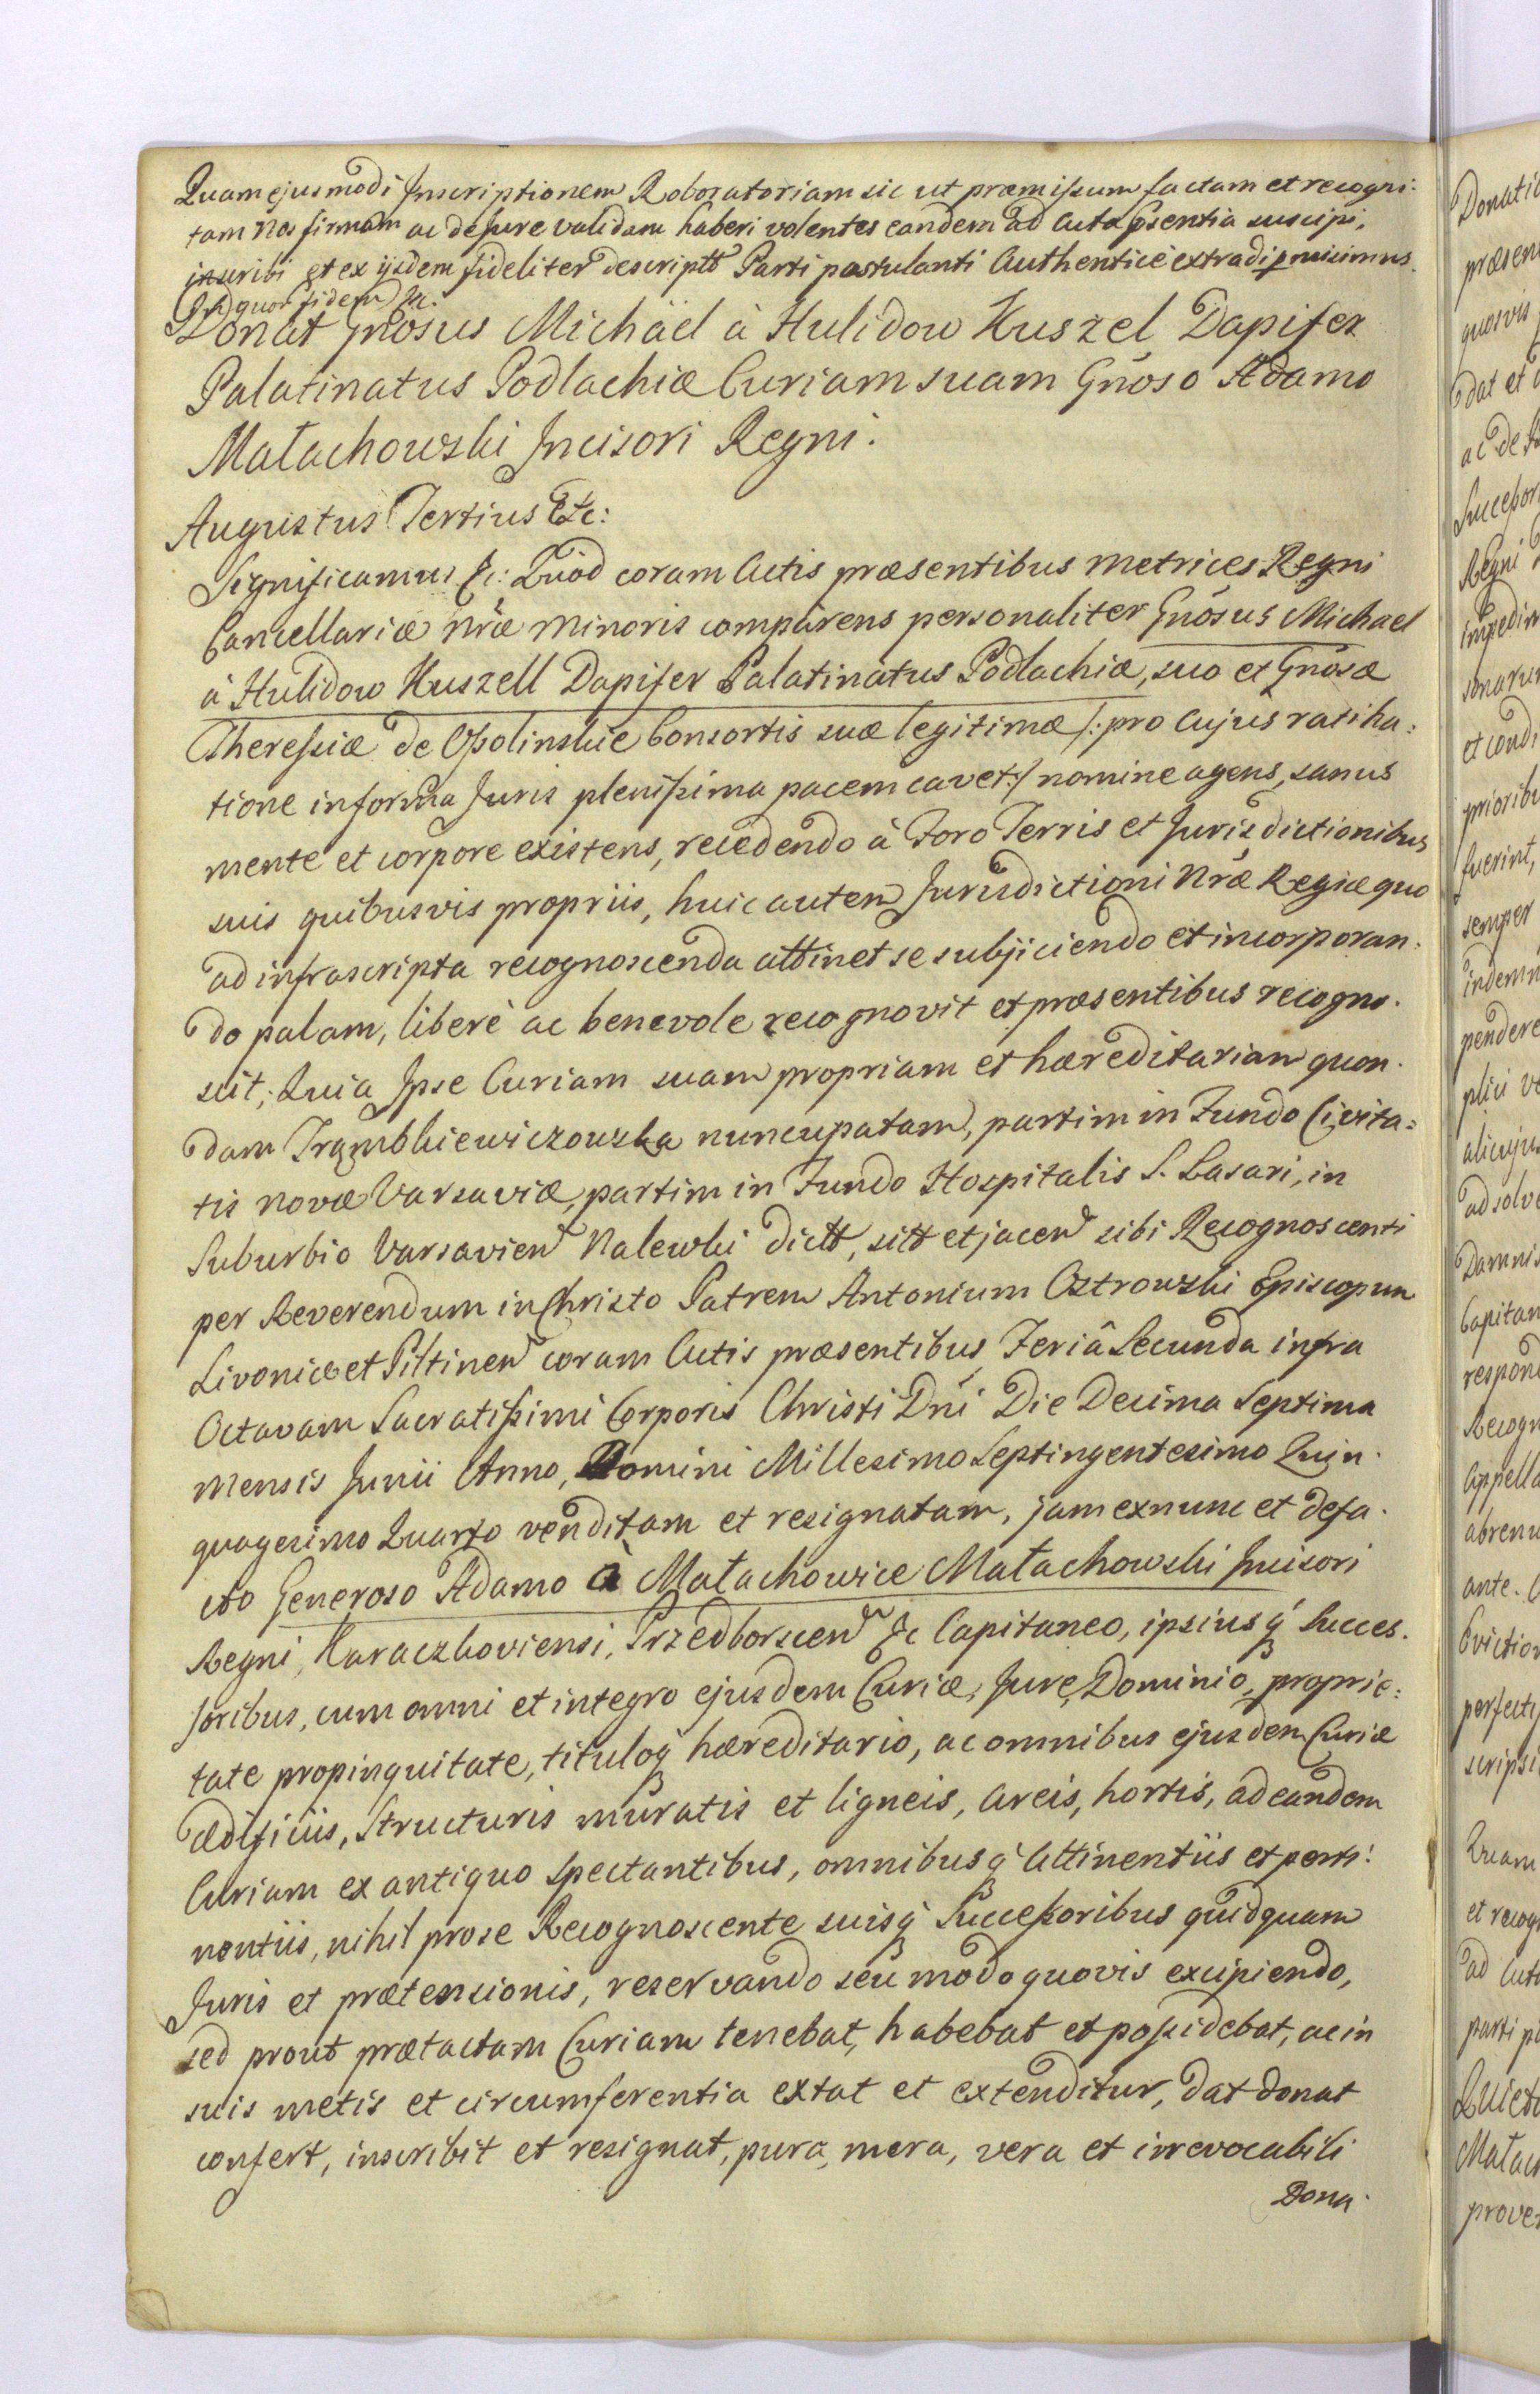 Quam ejusmodi Inscriptionem Roboratoriam sic ut præmissum factam et recogni:
tam Nos firmam ac de Jure validam haberi volentes eandem ad Acta psentia suscipi,
inscribi et ex ijsdem fideliter descriptt Parti postulanti Authenticè extradi pmisimus.
In quor fidem &c.
Donat Gnosus Michäel à Hulidow Kuszel Dapifer
Palatinatus Podlachiæ Curiam suam Gnoso Adamo
Małachowski Incisori Regni.
Augustus Tertius Etc:
Significamus &c: Quod coram Actis præsentibus Metrices Regni
Cancellariæ Nræ Minoris comparens personaliter Gnosus Michael
à Hulidow Kuszell Dapifer Palatinatus Podlachiæ, suo et Gnosæ
Theressiæ de Ossolinskie Consortis suæ legitimæ /: pro cujus ratiha:
tione in forma Juris plenissima pacem cavet :/ nomine agens, sanus
mente et corpore existens, recedendo à Foro Terris et Jurisdictionibus
suis quibusvis propriis, huic autem Jurisdictioni Nræ Regiæ quo
ad infrascripta recognoscenda attinet se subjiciendo et incorporan:
do palam, liberè ac benevole recognovit et præsentibus recogno.
scit; Quia Ipse Curiam suam propriam et hæreditariam quon.
dam Trąmbkiewiczowska nuncupatam, partim in Fundo Civita:
tis Novæ Varsaviæ, partim in Fundo Hospitalis S. Lasari, in
Suburbio Varsavien Nalewki dictt, sitt et jacen sibi Recognoscenti
per Reverendum in Christo Patrem Antonium Ostrowski Episcopum
Livoniæ et Piltinen coram Actis præsentibus Feriâ Secunda infra
Octavam Sacratissimi Corporis Christi Dni Die Decima Septima
Mensis Junii Anno, Domini Millesimo Septingentesimo Quin.
quagesimo Quarto venditam et resignatam, jam exnunc et defa.
cto Generoso Adamo à Małachowice Małachowski Incisori
Regni, Karaczkoviensi, Przedborscen &c Capitaneo, ipsiusq Succes.
soribus, cum omni et integro ejusdem Curiæ, Jure, Dominio, proprie:
tate propinquitate, tituloq hæreditario, ac omnibus ejusdem Curiæ
ædificiis, Structuris muratis et ligneis, Areis, hortis, ad eandem
Curiam ex antiquo spectantibus, omnibusq Attinentiis et perti:
nentiis, nihil pro se Recognoscente suisq Successoribus quidquam
Juris et prætensionis, reservando seu modo quovis excipiendo,
sed prout prætactam Curiam tenebat, habebat et possidebat, ac in
suis metis et circumferentia extat et extenditur, dat donat
confert, inscribit et resignat, pura, mera, vera et irrevocabili
Dona.